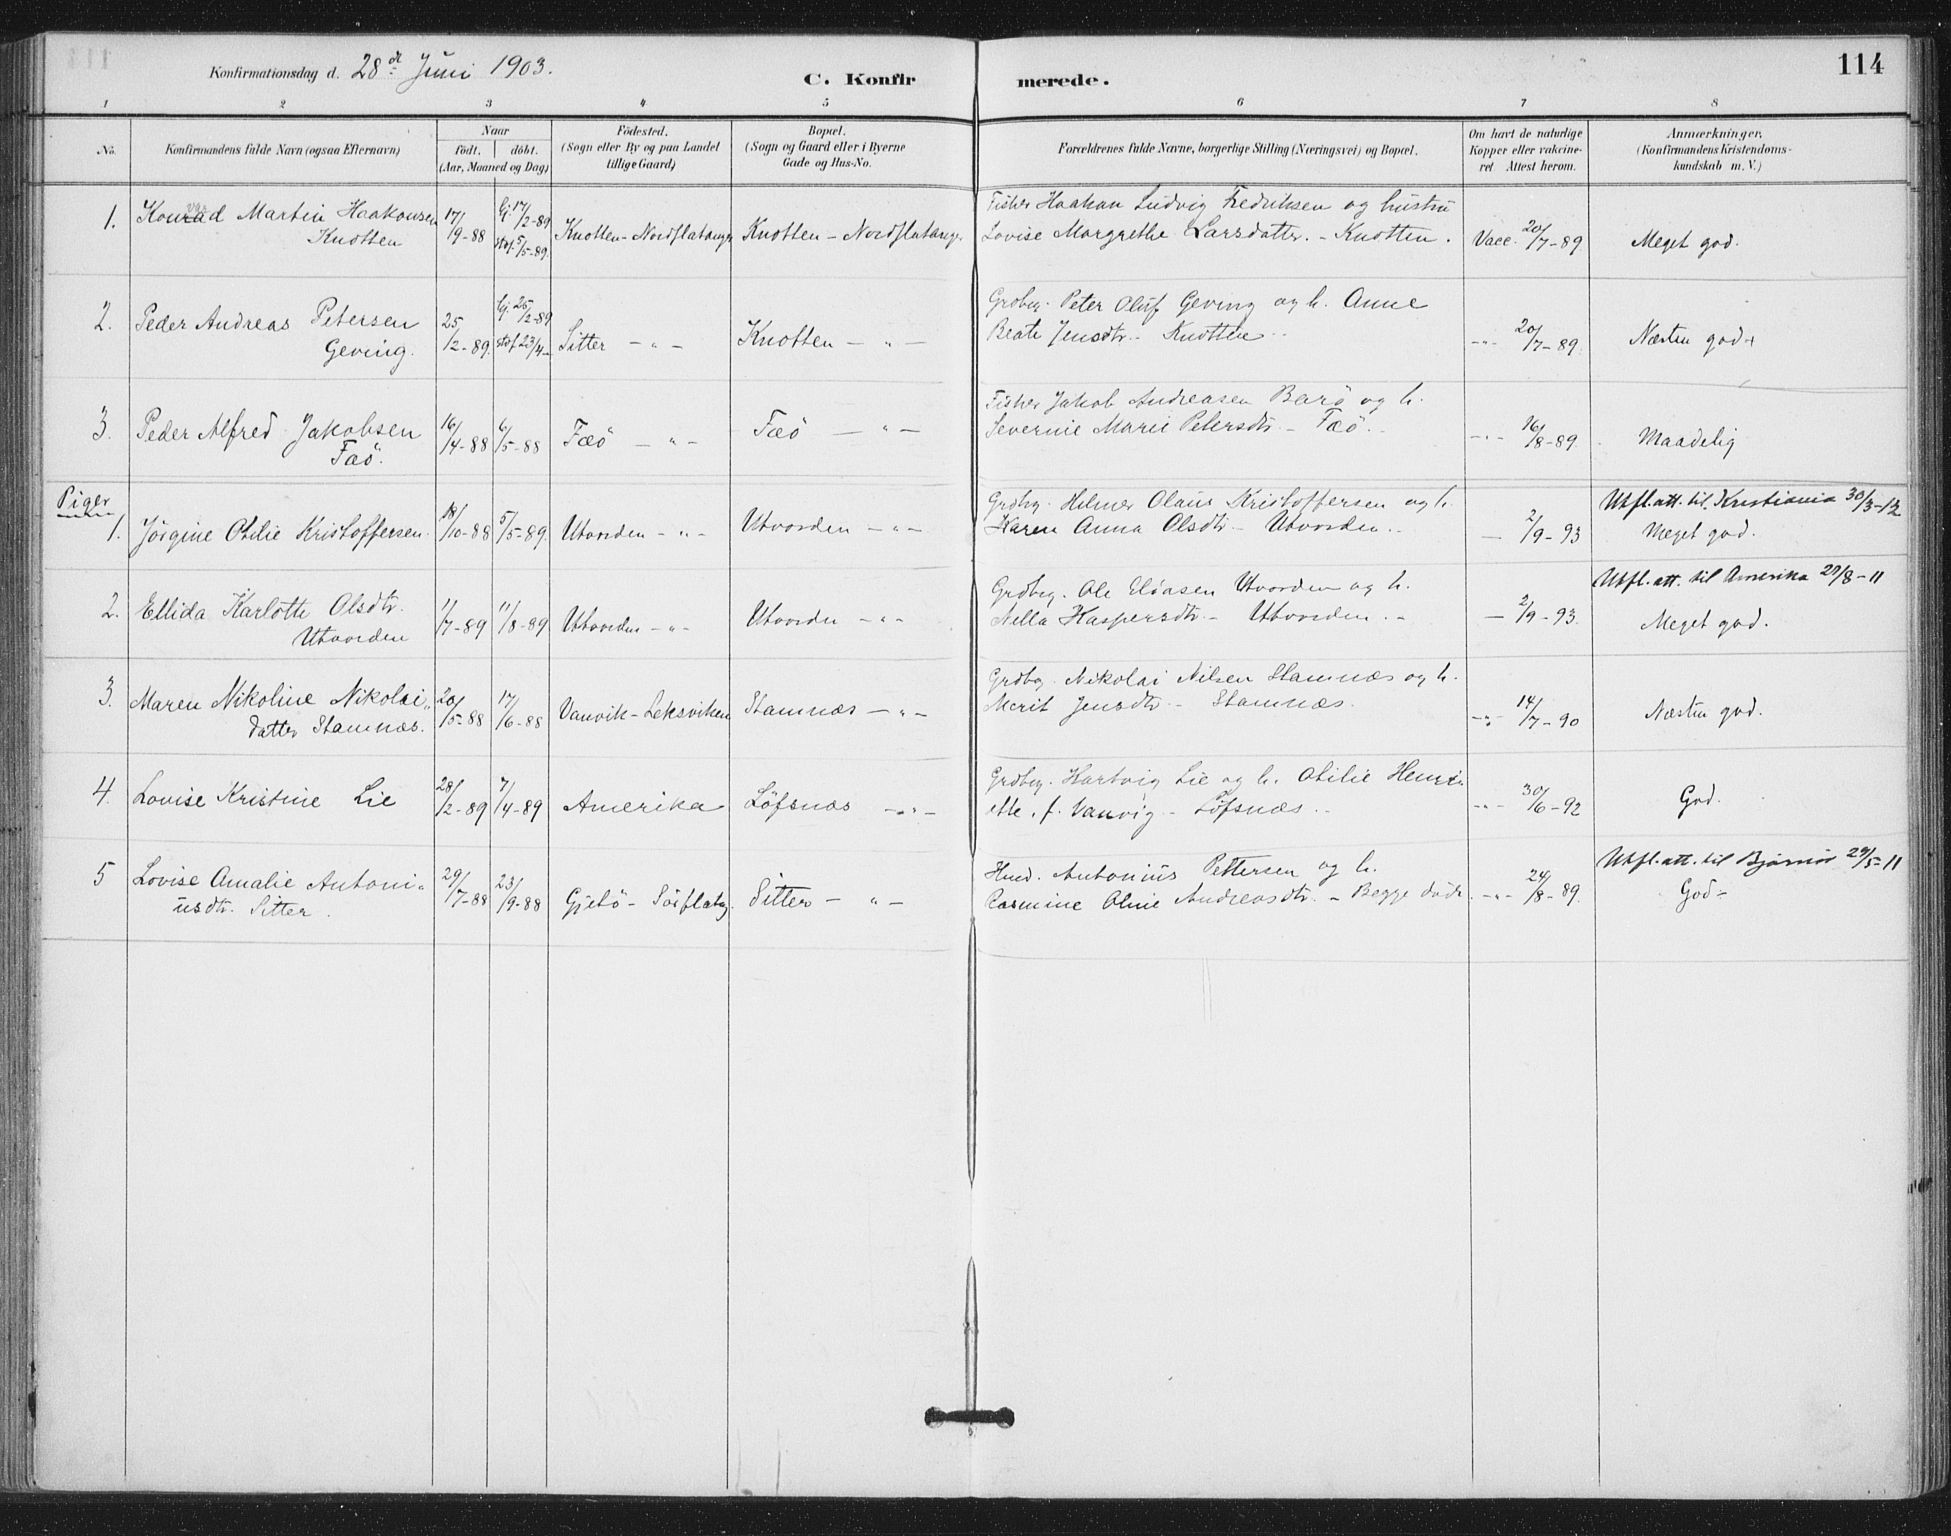 Konfirmationsdag d. 28de Juni 1903.
C. Konfirmerede.
114
1 2 3 4 5 6 7 8
No.
Konfirmandens fulde Navn (ogsaa Efternavn)
Naar
født. døbt.
(Aar, Maaned og Dag)
Fødested.
(Sogn eller By og paa Landet
tillige Gaard)
Bopæl.
(Sogn og Gaard eller i Byerne
Gade og Hus-No.
Forældrenes fulde Navne, borgerlige Stilling (Næringsvei) og Bopæl.
Om havt de naturlige
Kopper eller vakcine-
ret Attest herom.
Anmærkninger.
(Konfirmandens Kristendoms-
kundskab m. V.)
1. Konrad Martin Haakonsen
Knotten
17/9-88
Hj. 17/2-89
staf. 5/5-89.
Knotten - Nordflatanger
Knotten - Nordflatang.
Fisker Haakan Ludvig Fredriksen og hustru
Lovise Margrethe Larsdatter. - Knotten.
Vacc. 20/7-89
Meget god.
2. Peder Andreas Petersen
Geving.
25/2-89.
Hj. 25/2-89
staf 23/4-
Sitter - " -
Knotten - " -
Grdbrg. Peter Oluf Geving og h. Anne
Beate Jensdtr. - Knotten
-"- 20/7-89.
Næsten god+
3. Peder Alfred Jakobsen
Fæö.
16/4-88
6/5-88
Fæö - " -
Fæö - " -
Fisker Jakob Andreasen Barö og h.
Severine Marie Petersdtr. - Fæö.
-"- 16/8-89.
Maadelig
Piger
1. Jörgine Otilie Kristoffersen.
18/10-88
5/5-89.
Utvorden - " -
Utvorden - " -
Grdbrg. Helmer Olaus Kristoffersen og h.
Karen Anna Olsdtr. - Utvorden.
- 2/9-93
Utfl.att. til Kristiania 30/3-12
Meget god.
2. Ellida Karlotte Olsdtr.
Utvorden
11/7-89
11/8-89
Utvorden - " -
Utvorden - " -
Grdbrg. Ole Eliasen Utvorden og h.
Nella Kaspersdtr. - Utvorden. -
- 2/9-93.
Utfl.att. til Amerika 29/8-11
Meget god.
3. Maren Nikoline Nikolai-
datter Stamnæs.
20/5-88
17/6-88
Vanvik - Leksviken
Stamnæs - " -
Grdbrg. Nikolai Nilsen Stamnæs og h.
Merit Jensdtr. - Stamnæs.
-"- 14/7-90
Næsten god.
4. Lovise Kristine Lie
28/2-89
7/4-89
Amerika
Löfsnæs - " -
Grdbrg. Hartvig Lie og h. Otilie Henri-
ette, f. Vanvig - Löfsnæs.
-"- 30/6-92
God.
5 Lovise Amalie Antoni-
usdtr. Sitter.
29/7-88
23/9-88
Gjetö - Sörflatg.
Sitter - " -
Hmd. Antonius Pettersen og h.
Rasmine Oline Andreasdtr. - Begge døde.
-"- 24/8-89.
Utfl.att. til Bjørnør 29/5-11
God-